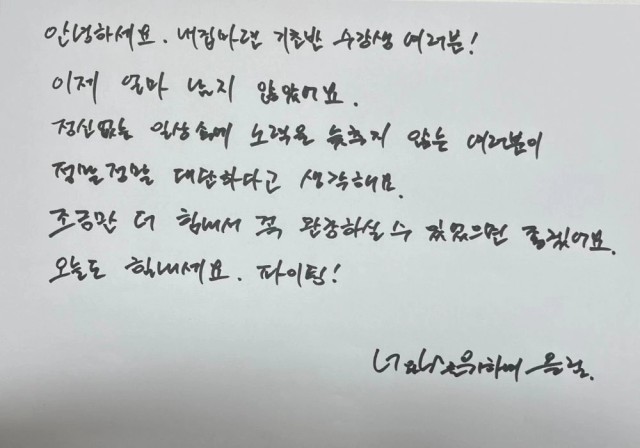 안녕하세요. 내집마련 기초반 수강생 여러분!
이제 얼마 남지 않았어요.
정신없는 일상속에 노력을 늦추지 않는 여러분이
정말정말 대단하다고 생각해요.
조금만 더 힘내서 꼭 완강하실 수 있었으면 좋겠어요.
오늘도 힘내세요. 파이팅!
올림.